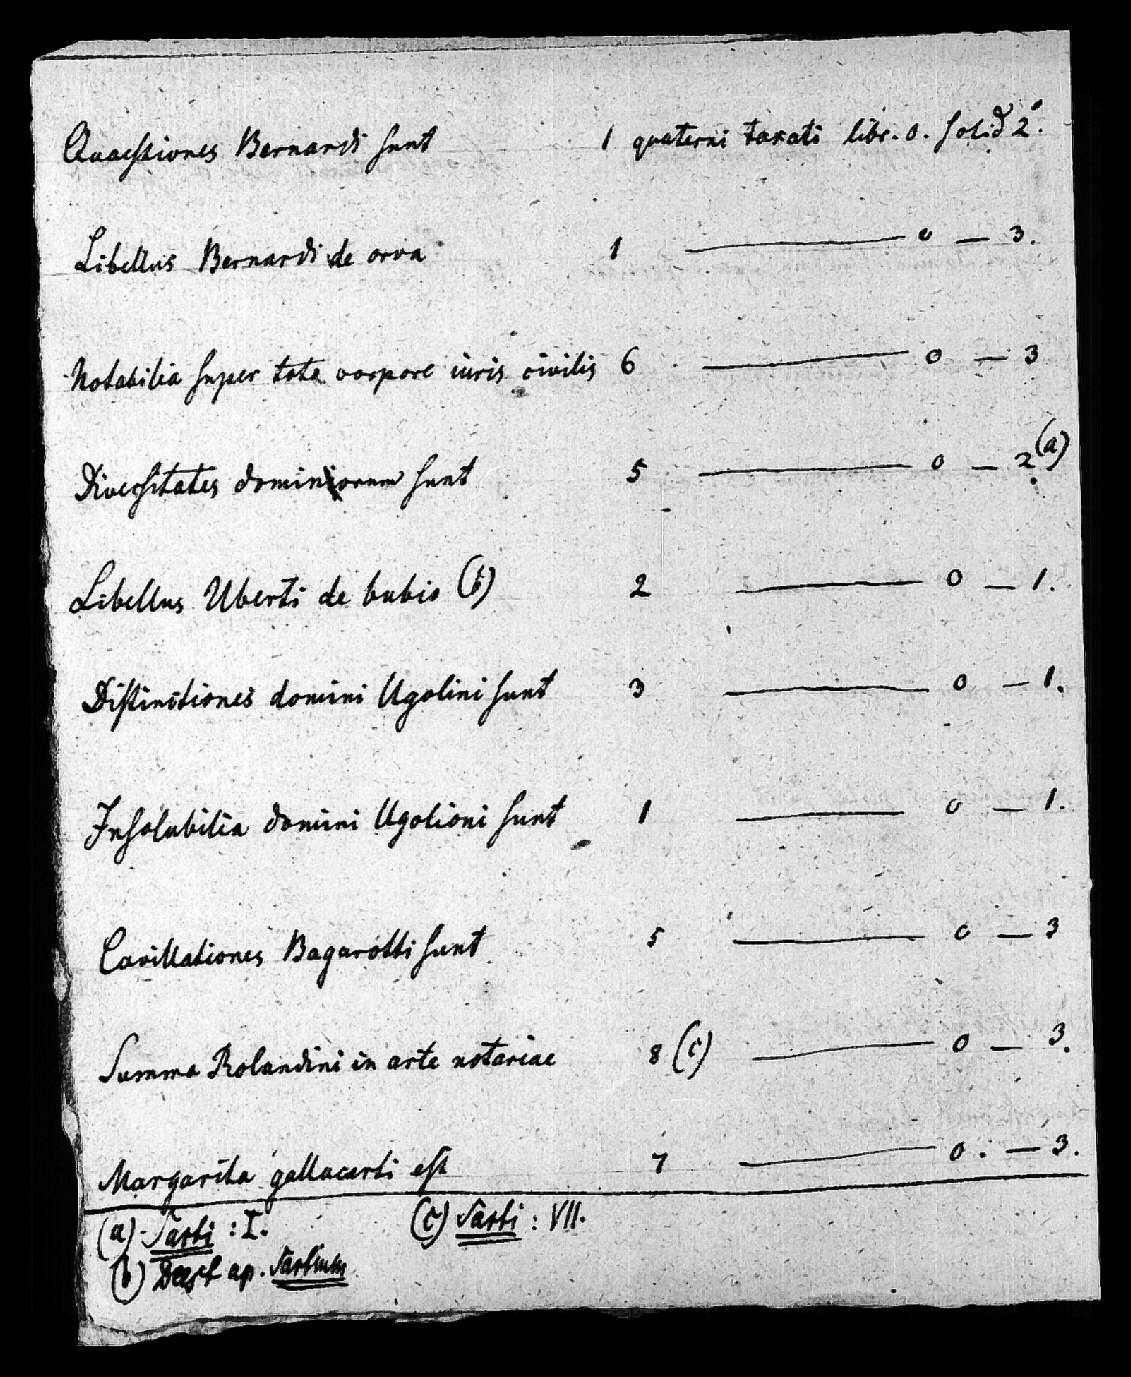 Quaestiones Bernardi sunt 1 quaterni taxati libr. 0. solid 2.
Libellus Bernardi de orva 1 — 0 — 3.
Notabilia super toto corpore iuris civilis 6 — 0 — 3
Diversitates dominorum sunt 5 — 0 — 2 (a)
Libellus Uberti de bubio (b) 2 — 0 — 1.
Distinctiones domini Ugolini sunt 3 — 0 — 1.
Insolubilia domini Ugolioni sunt 1 — 0 — 1.
Cavillationes Bagarotti sunt 5 — 0 — 3
Summa Rolandini in arte notariae 8 (c) — 0 — 3.
Margarita gallacerti est 7 — 0. — 3.
(a) Sarti : I. (c) Sarti : VII.
(b) Deest ap. Sartium